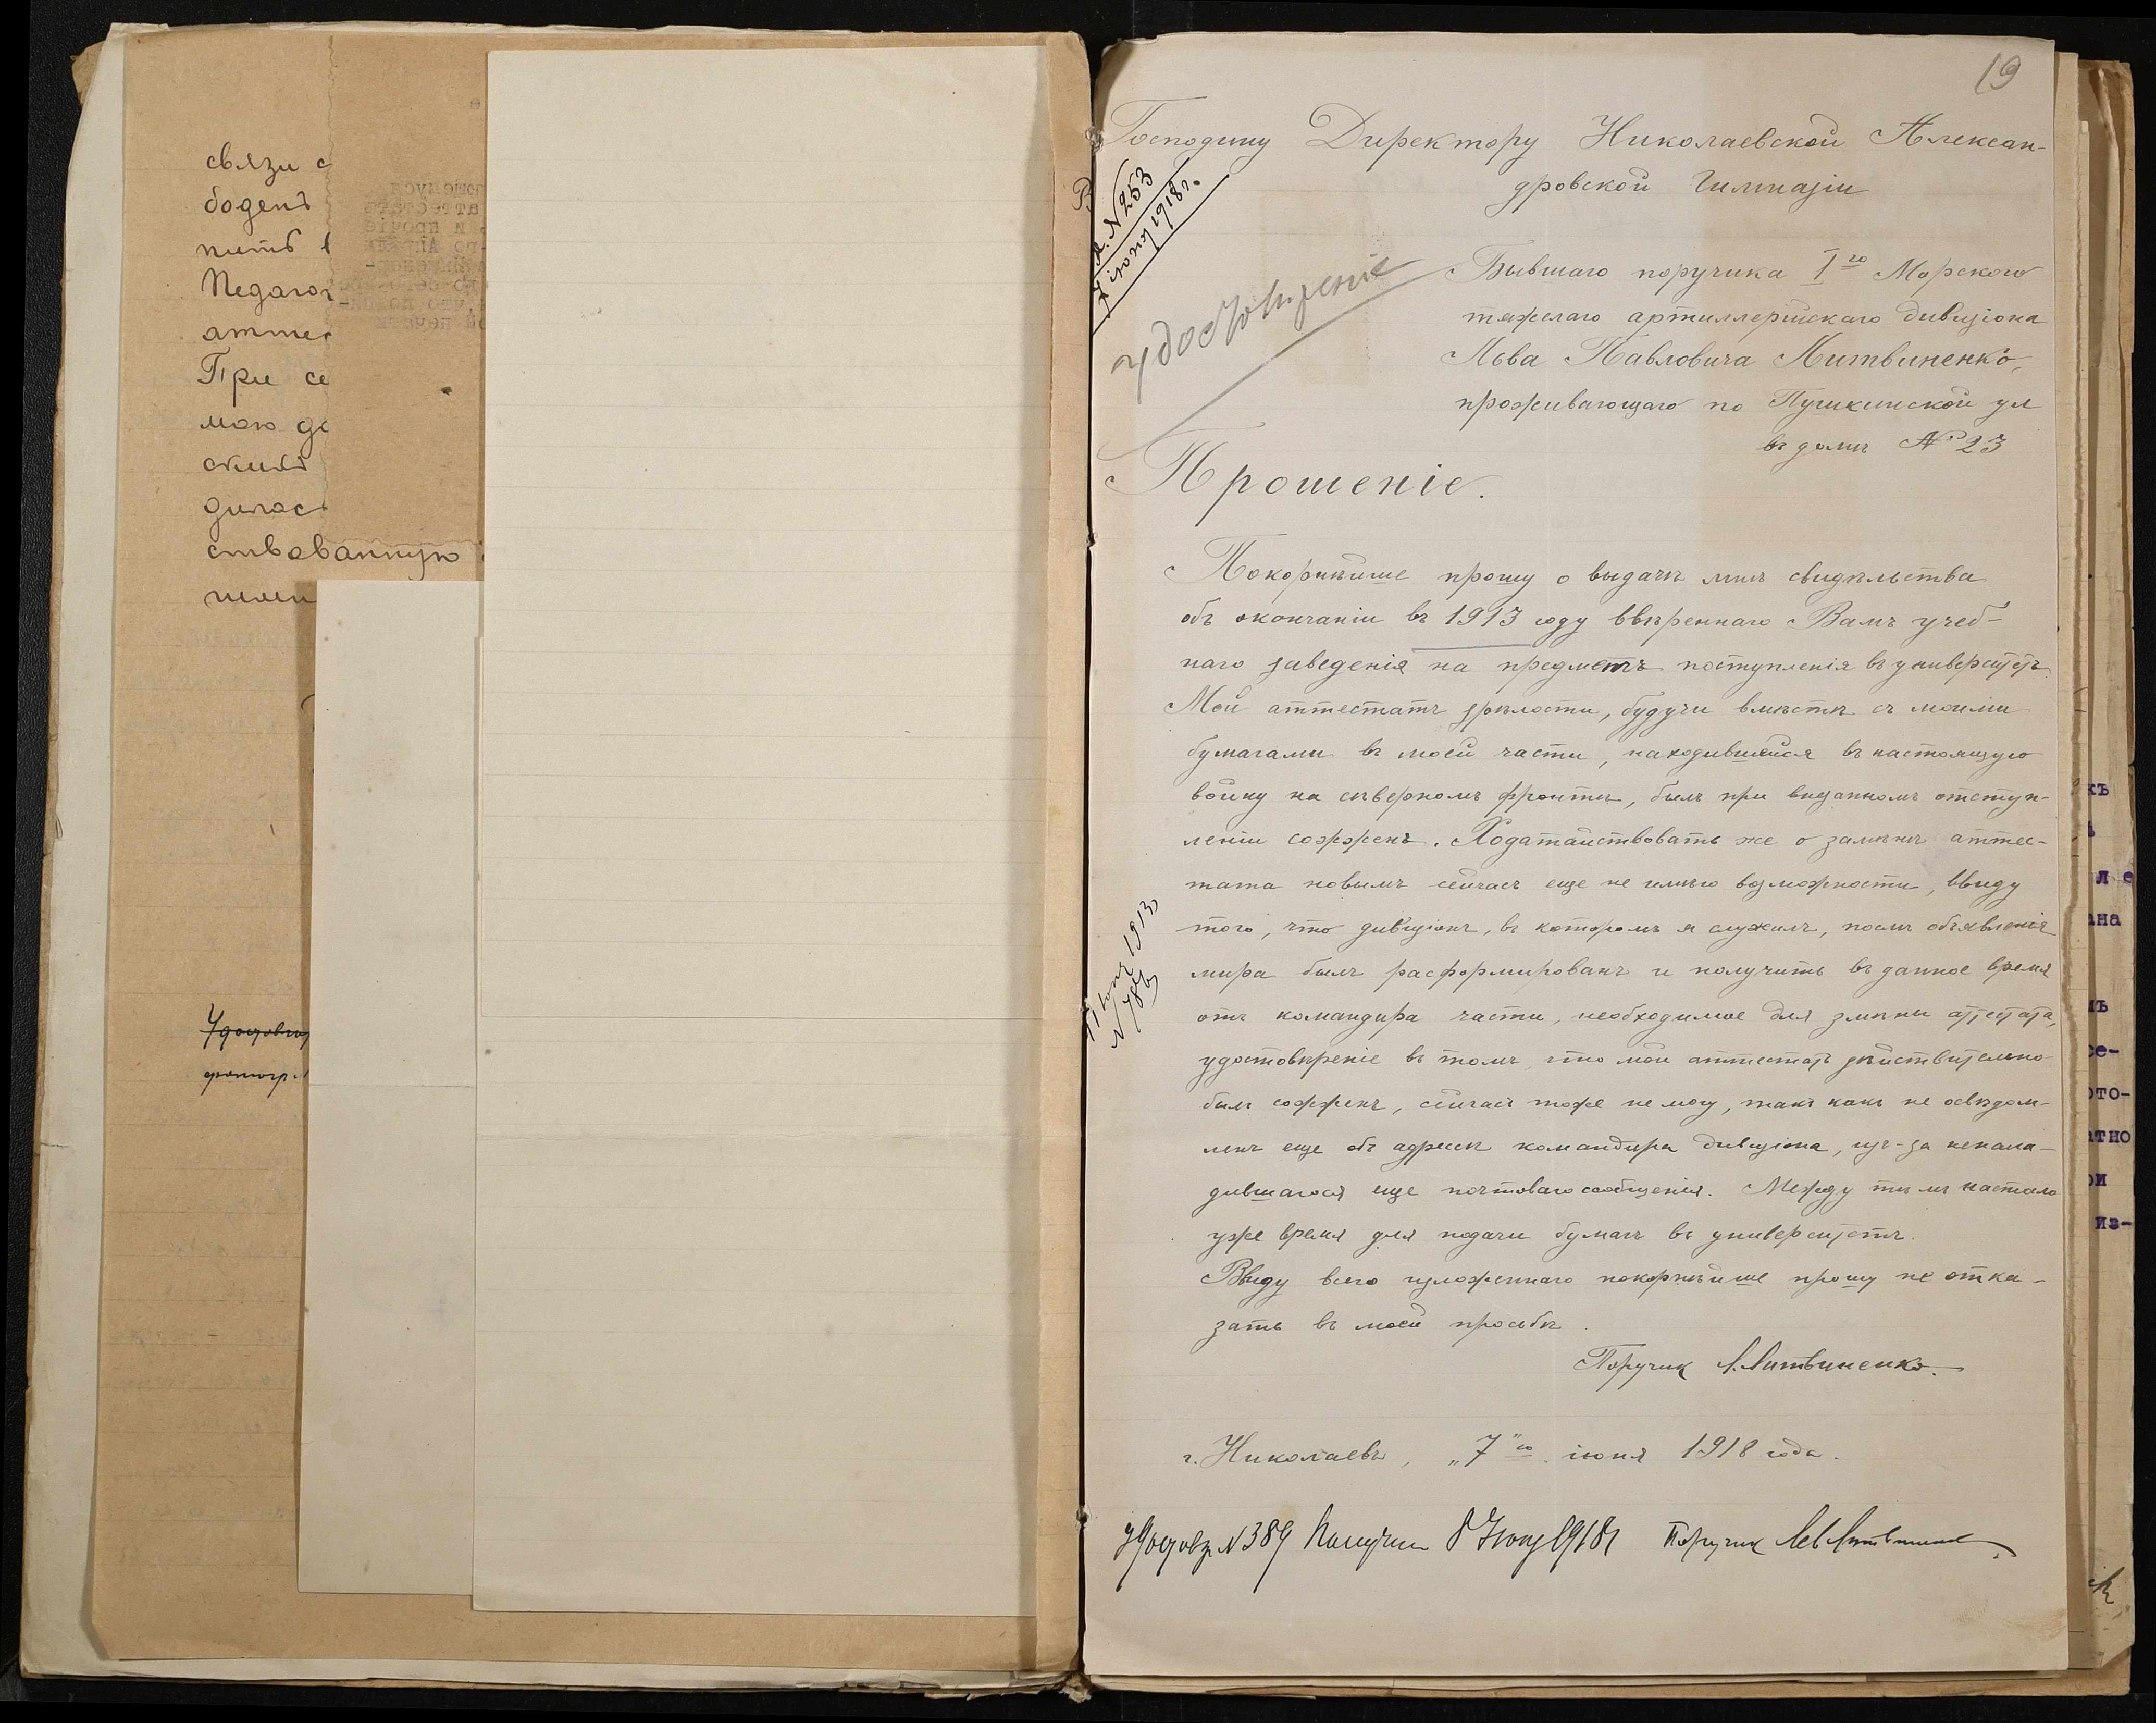 связи с
боденъ
Педагог
аттес
При се
мою
ствованную
19
Господину Директору Николаевской Александ-
дровской Гимназіи
В. № 253
7 іюня 1918 г.
удостовѣреніе
Бывшаго поручика 1го Морского
тяжелаго артиллерійскаго дивизіона
Льва Павловича Литвиненко,
проживающаго по Пушкинской ул
въ домѣ № 23
Прошеніе.
Покорнѣйше прошу о выдачѣ мнѣ свидѣльства
объ окончаніи въ 1913 году ввѣреннаго Вамъ учеб-
наго заведенія на предметъ поступленія въ университетъ.
Мой аттестатъ зрѣлости, будучи вмѣстѣ съ моими
бумагами въ моей части, находившейся въ настоящую
войну на сѣверномъ фронтѣ, былъ при внезапномъ отступ-
леніи сожженъ. Ходатайствовать же о замѣнѣ аттес-
тата новымъ сейчасъ еще не имѣю возможности, ввиду
того, что дивизіонъ, въ которомъ я служилъ, послѣ объявленія
мира былъ расформированъ и получить въ данное время
отъ командира части, необходимое для змѣны аттестата,
удостовѣреніе въ томъ что мой аттестатъ дѣйствительно
былъ сожженъ, сейчасъ тоже не могу, такъ какъ не освѣдом-
ленъ еще объ адресѣ командира дивизіона, изъ-за ненала-
дившагося еще почтоваго сообщенія. Между тѣмъ настало
уже время для подачи бумагъ въ университетъ.
Ввиду всего изложеннаго покорнѣйше прошу не отка-
зать въ моей просьбѣ.
Поручик Л. Литвиненко.
1913
№ 786
г. Николаевъ, „7"го іюня 1918 года.
Удостов. № 389 Получил 8 Іюня 1918 г Поручик Лев Литвиненко
къ
ле
ана
се-
ото-
атно
ри
из-